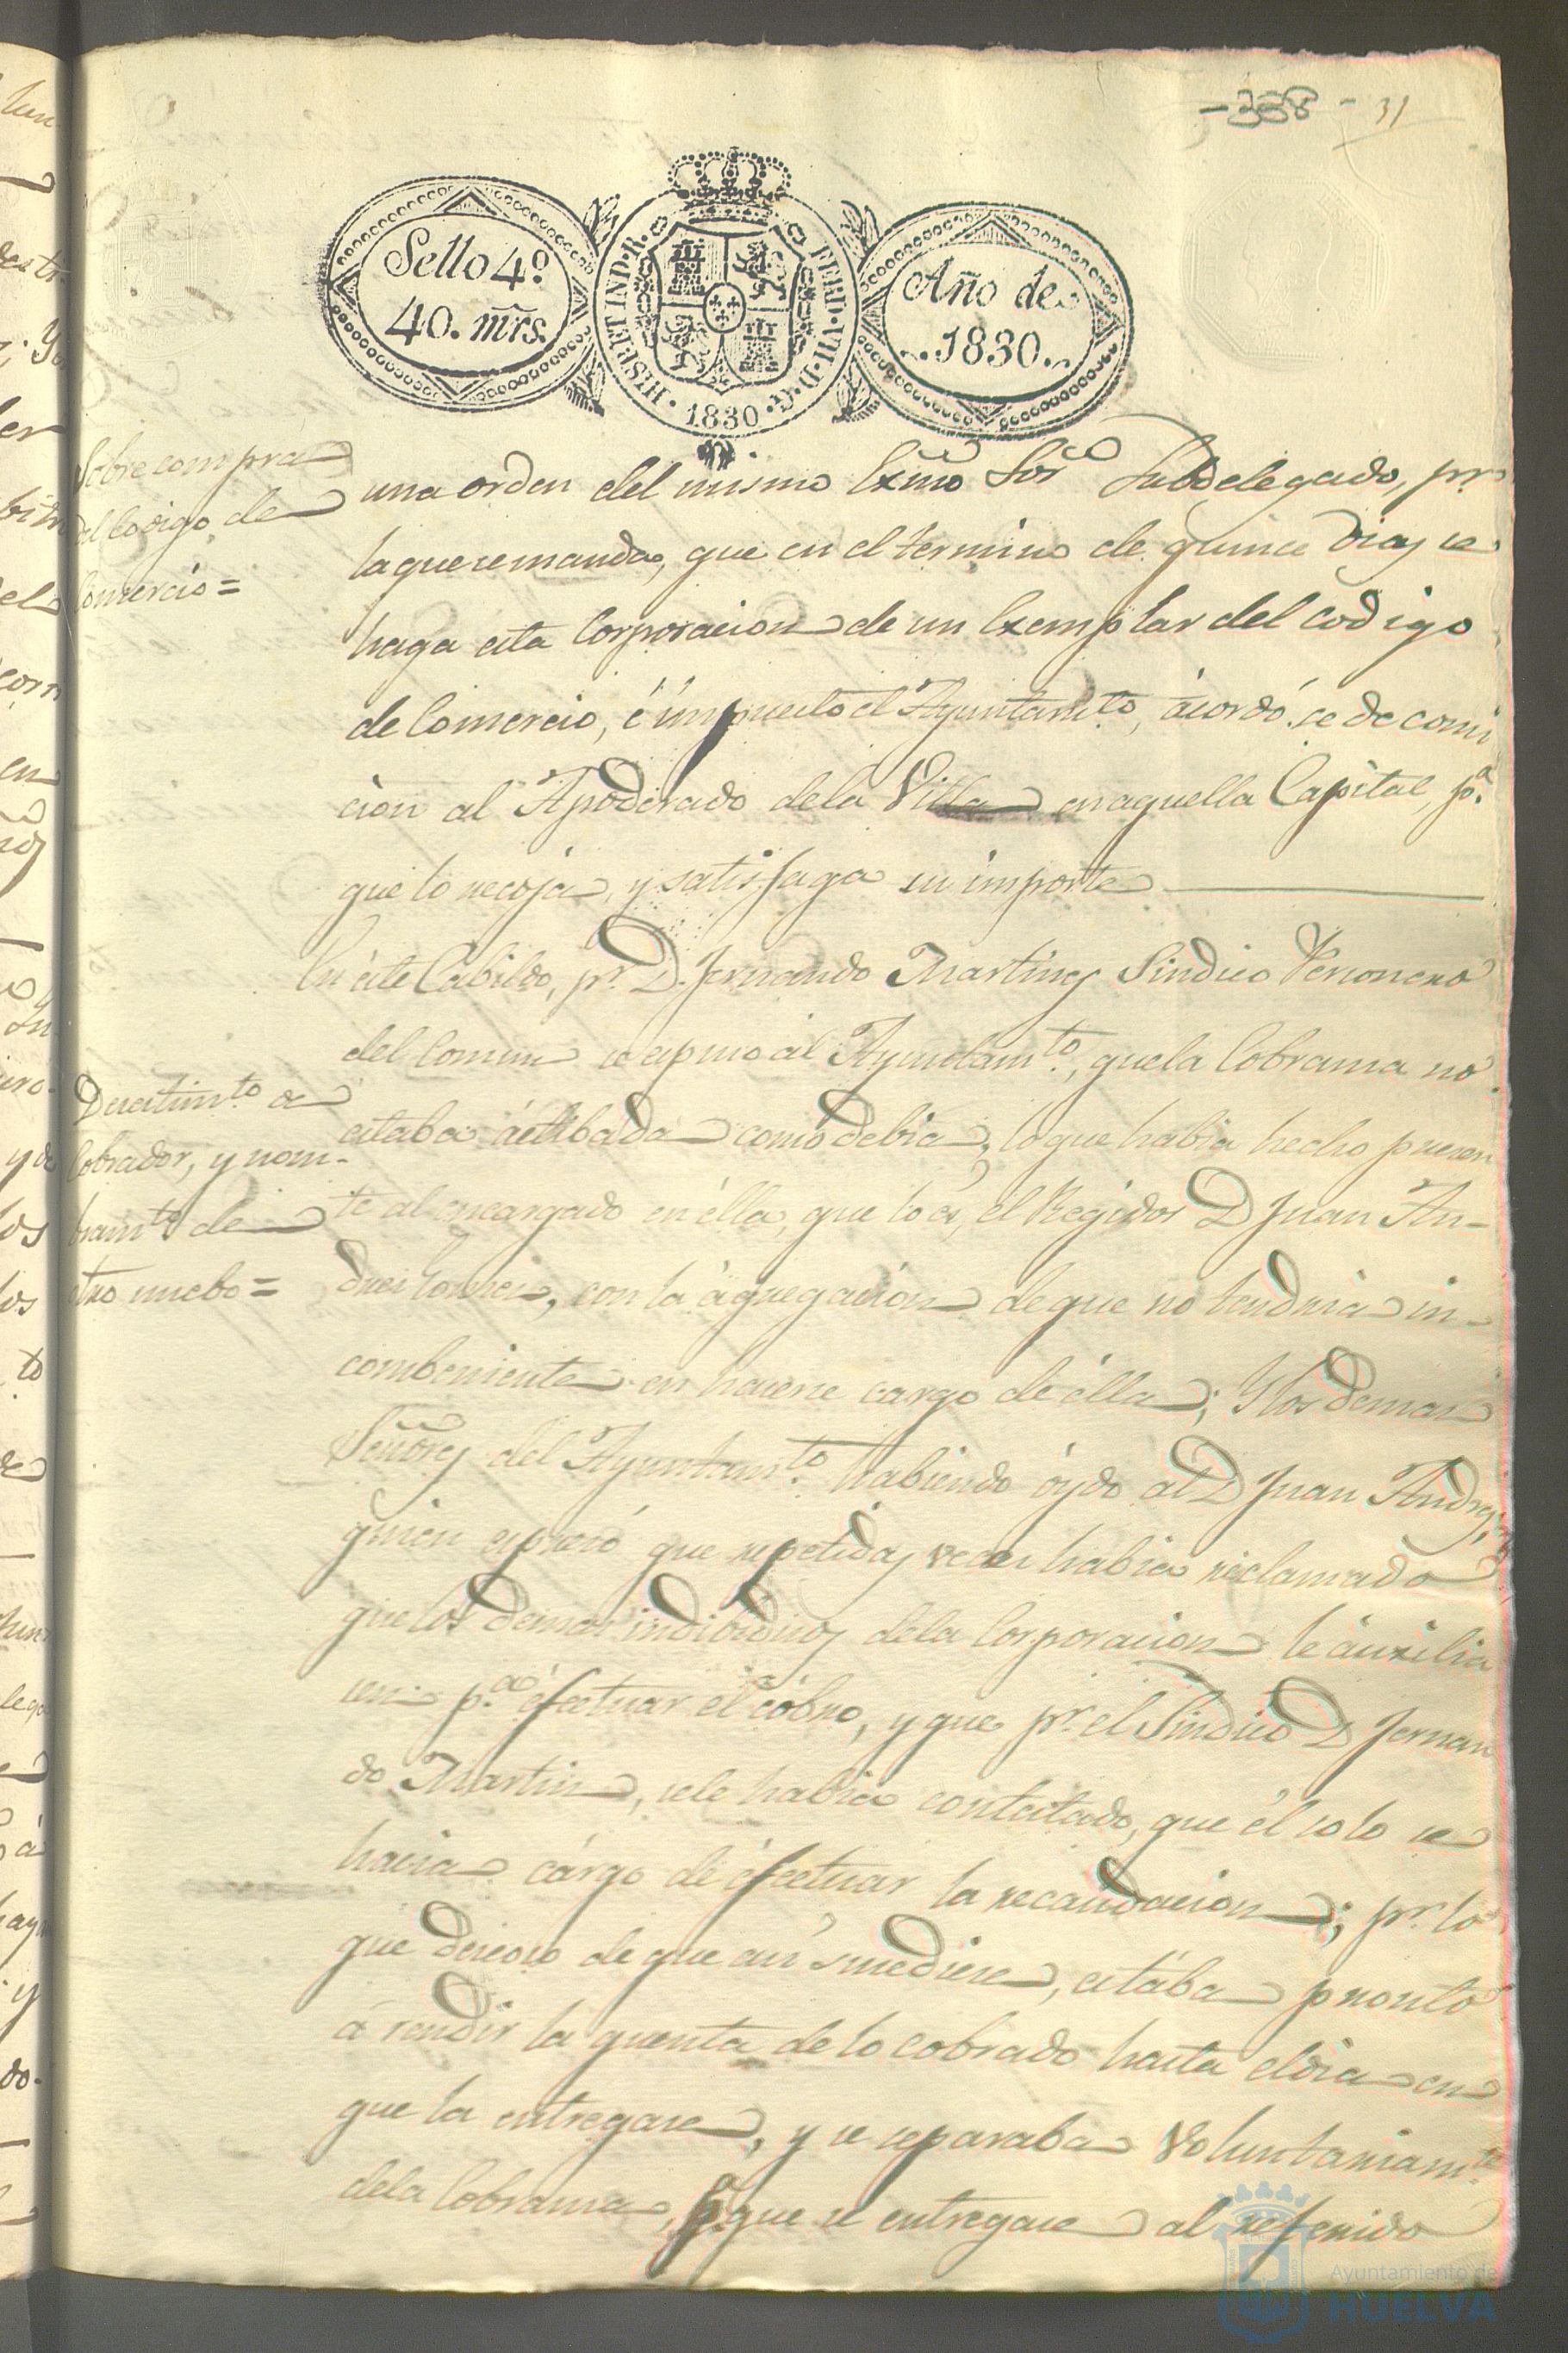 -338- 31
Sello 4º
40. mr̃s.
HISP. ET IND. R. FERD. VII. D. G. 1830
Año de
1830.
Sobre compra
del Codigo de
Comercio =
una orden del mismo Exmo Sor Subdelegado, pr.
la que se manda, que en el termino de quince dias se
haga esta Corporacion de un Exemplar del codigo
de Comercio, é impuesto el Ayuntamto, acordó se de comi
cion al Apoderado dela Villa en aquella Capital, pa.
que lo recoja, y satisfaga su importe
En este Cabildo, pr. D. Fernando Martinez Sindico Personero
del Comun se espuso al Ayuntamto, que la Cobranza no
estaba áctibada como debia, lo que habia hecho presen
te al encargado en élla, que lo es, el Regidor D Juan An-
dres, con la agregacion de que no tendria in-
combeniente en hacerse cargo de élla; Y los demas
Señores del Ayuntamto. habiendo óydo al D Juan Andres,
quien espresó que repetidas veces habia reclamado
que los demas indibiduos dela Corporacion le auxilia
sen pa. éfectuar el cobro, y que pr. el Sindico D Fernan
do Martin, sele habia contestado, que él solo se
hacia cargo de éfectuar la recaudacion; pr. lo
que deseoso de que asi sucediese, estába pronto
á rendir la quenta de lo cobrado hasta el dia en
que la entregase, y se separaba Voluntariamte
dela Cobranza, pa. que se entregase al referido
Desestimto de
Cobrador, y nom-
bramto de
otro nuebo =
Ayuntamiento de
HUELVA